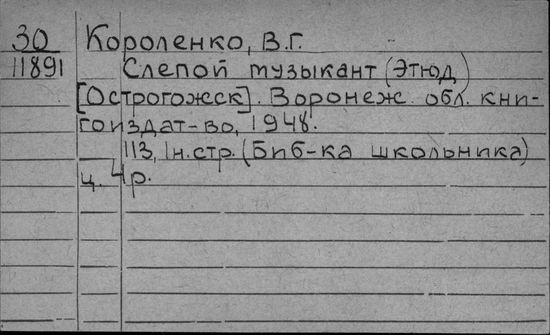 30 Короленко, В.Г.
11891 Слепой музыкант (Этюд)
[Острогожск]. Воронеж. обл. кни-
гоиздат-во, 1948.
113, 1н.стр. (Биб-ка школьника)
ц. 4р.